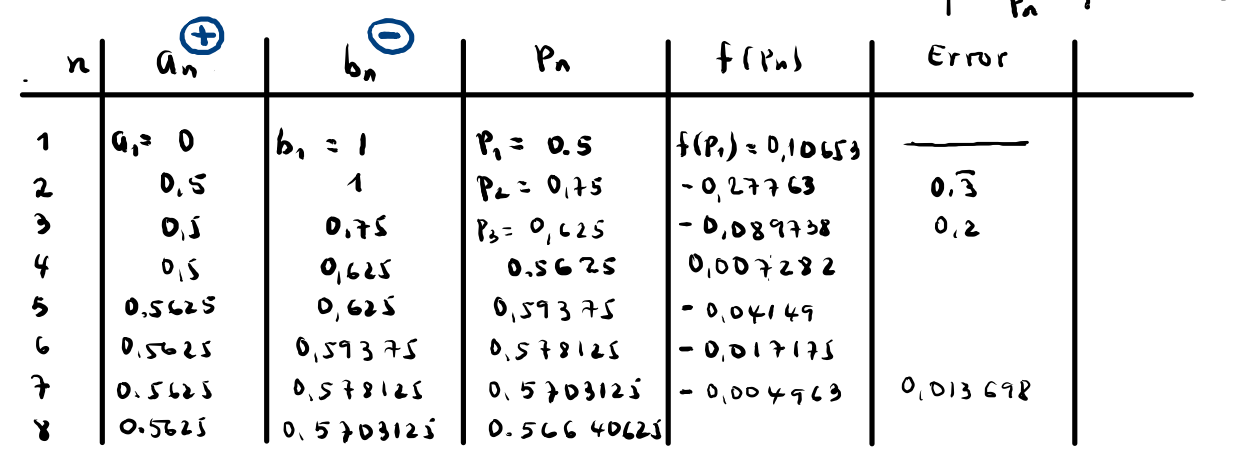 Pn
+ −
n an bn Pn f(Pn) Error
1 a₁= 0 b₁ = 1 P₁ = 0.5 f(P₁) = 0,10653 —
2 0,5 1 P₂ = 0,75 -0,27763 0.3̅
3 0,5 0.75 P₃= 0,625 -0,089738 0,2
4 0,5 0,625 0.5625 0,007282
5 0.5625 0,625 0,59375 -0,04149
6 0.5625 0,59375 0,578125 -0,017175
7 0.5625 0,578125 0,5703125 -0,004963 0,013698
8 0.5625 0,5703125 0.56640625